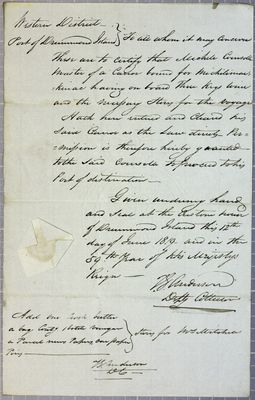 Western District
Port of Drummond Island } To all whom it may concern
These are to certify that Michele Courselle
Master of a Canoe bound for Michilimackinac
having on board Three Kegs wine
and the necessary Stores for the voyage
Hath here entered and Cleared his
said Canoe as the Law directs Per=
=mission is therefore hereby granted
to the said to proceed to his
Port of destination
Given under my hand
and Seal at the Custom house
of Drummond Island this 15th
day of June 1819 and in the
59th Year of His Majesty's
Reign
Anderson
Depy Collector
Add one butter
a bag 1 bottle vinegar
a Parcel news Papers one paper
Pins
Stores for Mrs Mitchell
Anderson
DC